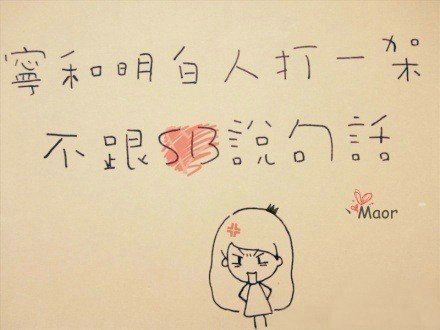 寧和明白人打一架
不跟SB說句話
Maor